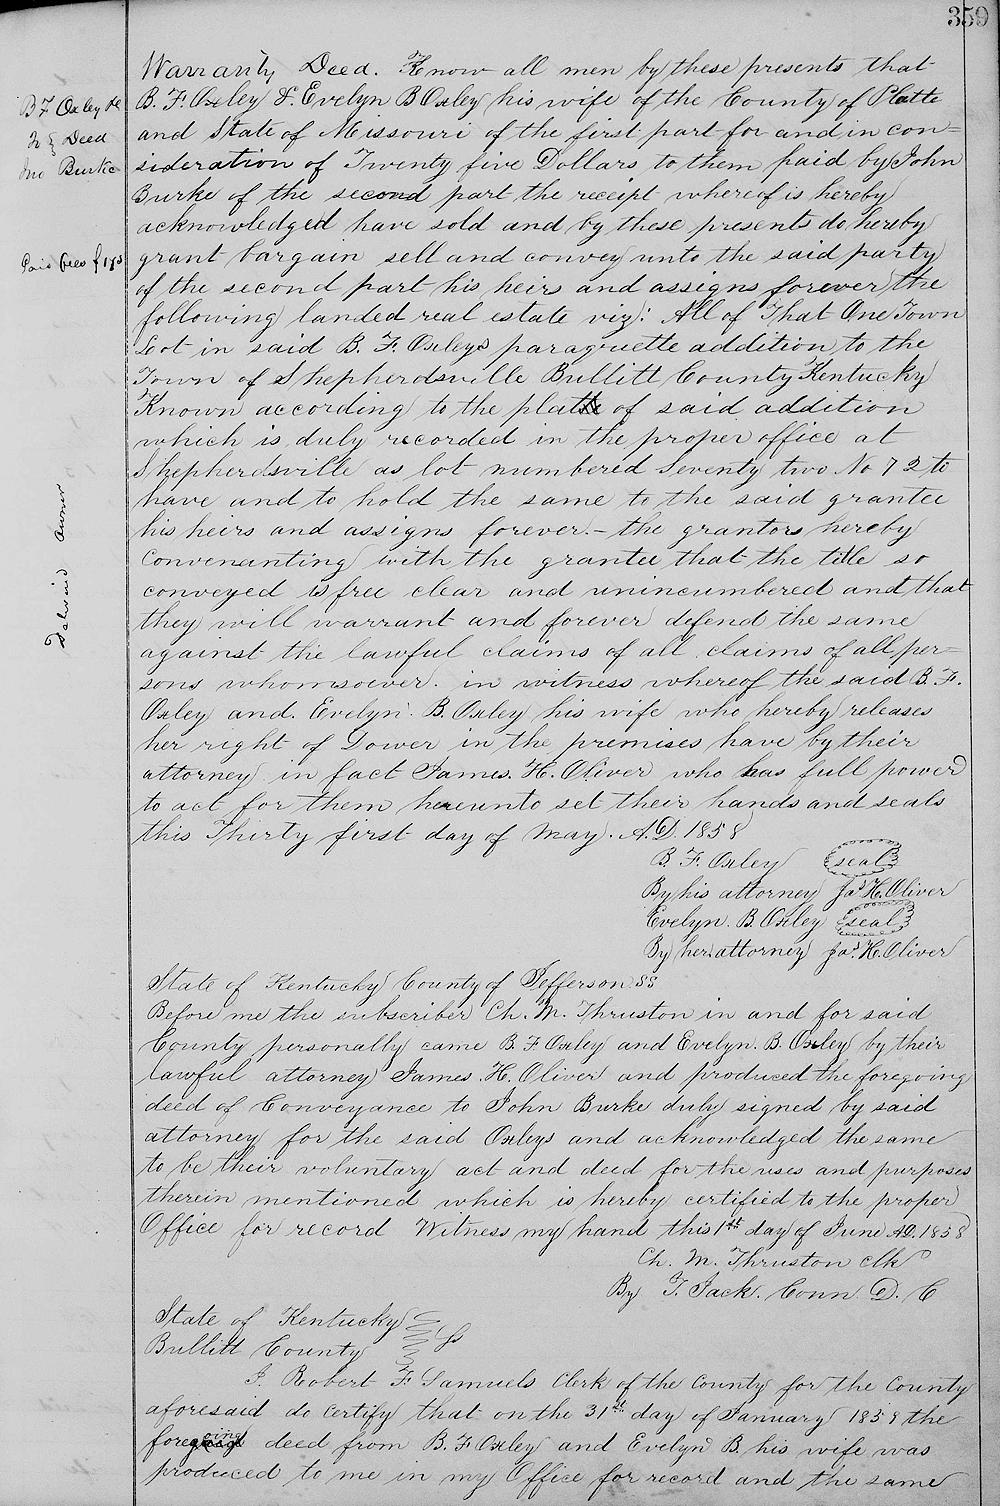 359
Warranty Deed. Know all men by these presents that
B. F. Oxley & Evelyn B Oxley his wife of the County of Platte
and State of Missouri of the first part for and in con=
sideration of Twenty five Dollars to them paid by John
Burke of the second part the receipt whereof is hereby
acknowledged have sold and by these presents do hereby
grant bargain sell and convey unto the said party
of the second part his heirs and assigns forever the
following landed real estate viz: All of That One Town
Lot in said B. F. Oxleys paraquette addition to the
Town of Shepherdsville Bullitt County Kentucky
Known according to the plat of said addition
which is duly recorded in the proper office at
Shepherdsville as lot numbered Seventy two No 72 to
have and to hold the same to the said grantee
his heirs and assigns forever.- the grantors hereby
convenanting with the grantee that the title so
conveyed is free clear and unincumbered and that
they will warrant and forever defend the same
against the lawful claims of all claims of all per=
sons whomsoever. in witness whereof the said B. F.
Oxley and. Evelyn. B. Oxley his wife who hereby releases
her right of Dower in the premises have by their
attorney in fact James. H. Oliver who has full power
to act for them hereunto set their hands and seals
this Thirty first day of May. A.D. 1858
B. F. Oxley seal
By his attorney Jas H. Oliver
Evelyn. B. Oxley seal
By her attorney Jas. H. Oliver
State of Kentucky County of Jefferson SS
Before me the subscriber Ch. M. Thruston in and for said
County personally came B. F Oxley and Evelyn. B. Oxley by their
lawful attorney James. H. Oliver and produced the foregoing
deed of Conveyance to John Burke duly signed by said
attorney for the said Oxleys and acknowledged the same
to be their voluntary act and deed for the uses and purposes
therein mentioned which is hereby certified to the proper
Office for record Witness my hand this 1st day of June AD. 1858
Ch. M. Thruston clk
By T. Jack. Conn D. C
State of Kentucky
Bullitt County
I. Robert F. Samuels Clerk of the County for the County
aforesaid do certify that on the 31st day of January 1859 the
foregoing deed from B. F Oxley and Evelyn B. his wife was
produced to me in my Office for record and the same
B F Oxley
To } Deed
Jno Burke
Paid fees
Delivered